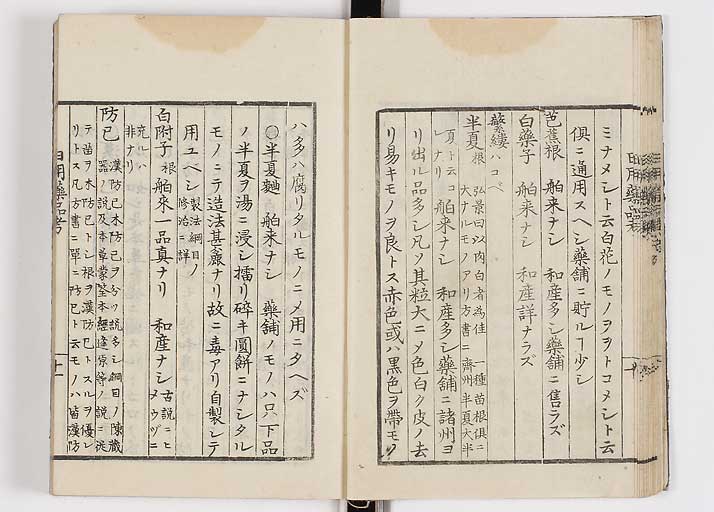 ミナメシト云白花ノモノヲヲトコメシト云
倶ニ通用スヘシ藥舗ニ貯ルヿ少シ
芭蕉根 舶来ナシ 和産多シ藥舗ニ售ラズ
白藥子 舶来ナシ 和産詳ナラズ
蘩縷ハコベ
半夏根 弘景曰以肉白者為佳 一種苗根倶ニ
大ナルモノアリ方書ニ齊州半夏大半
夏ト云コレナリ 舶来ナシ 和産多シ藥舗ニ諸州ヨ
リ出ル品多シ凡ソ其粒大ニメ色白ク皮ノ去
リ易キモノヲ良トス赤色或ハ黒色ヲ帶モノ
ハ多ハ腐リタルモノニメ用ニタヘズ
○半夏麯 舶来ナシ 藥舗ノモノハ只下品
ノ半夏ヲ湯ニ浸シ擂リ碎キ圓餅ニナシタル
モノニテ造法甚麁ナリ故ニ毒アリ自製シテ
用ユヘシ製法綱目ノ修治ニ詳
白附子根 舶來一品真ナリ 和産ナシ古説ニヒメウヅニ
充ルハ非ナリ
防已 漢防已木防已ヲ分ツ説多シ綱目ノ陳藏
器ノ説及本草蒙筌本經逢原等ノ説ニ從
テ苗ヲ木防已トシ根ヲ漢防已トスルヲ優レ
リトス凡方書ニ單ニ防已ト云モノハ皆漢防
日用藥品考
十一